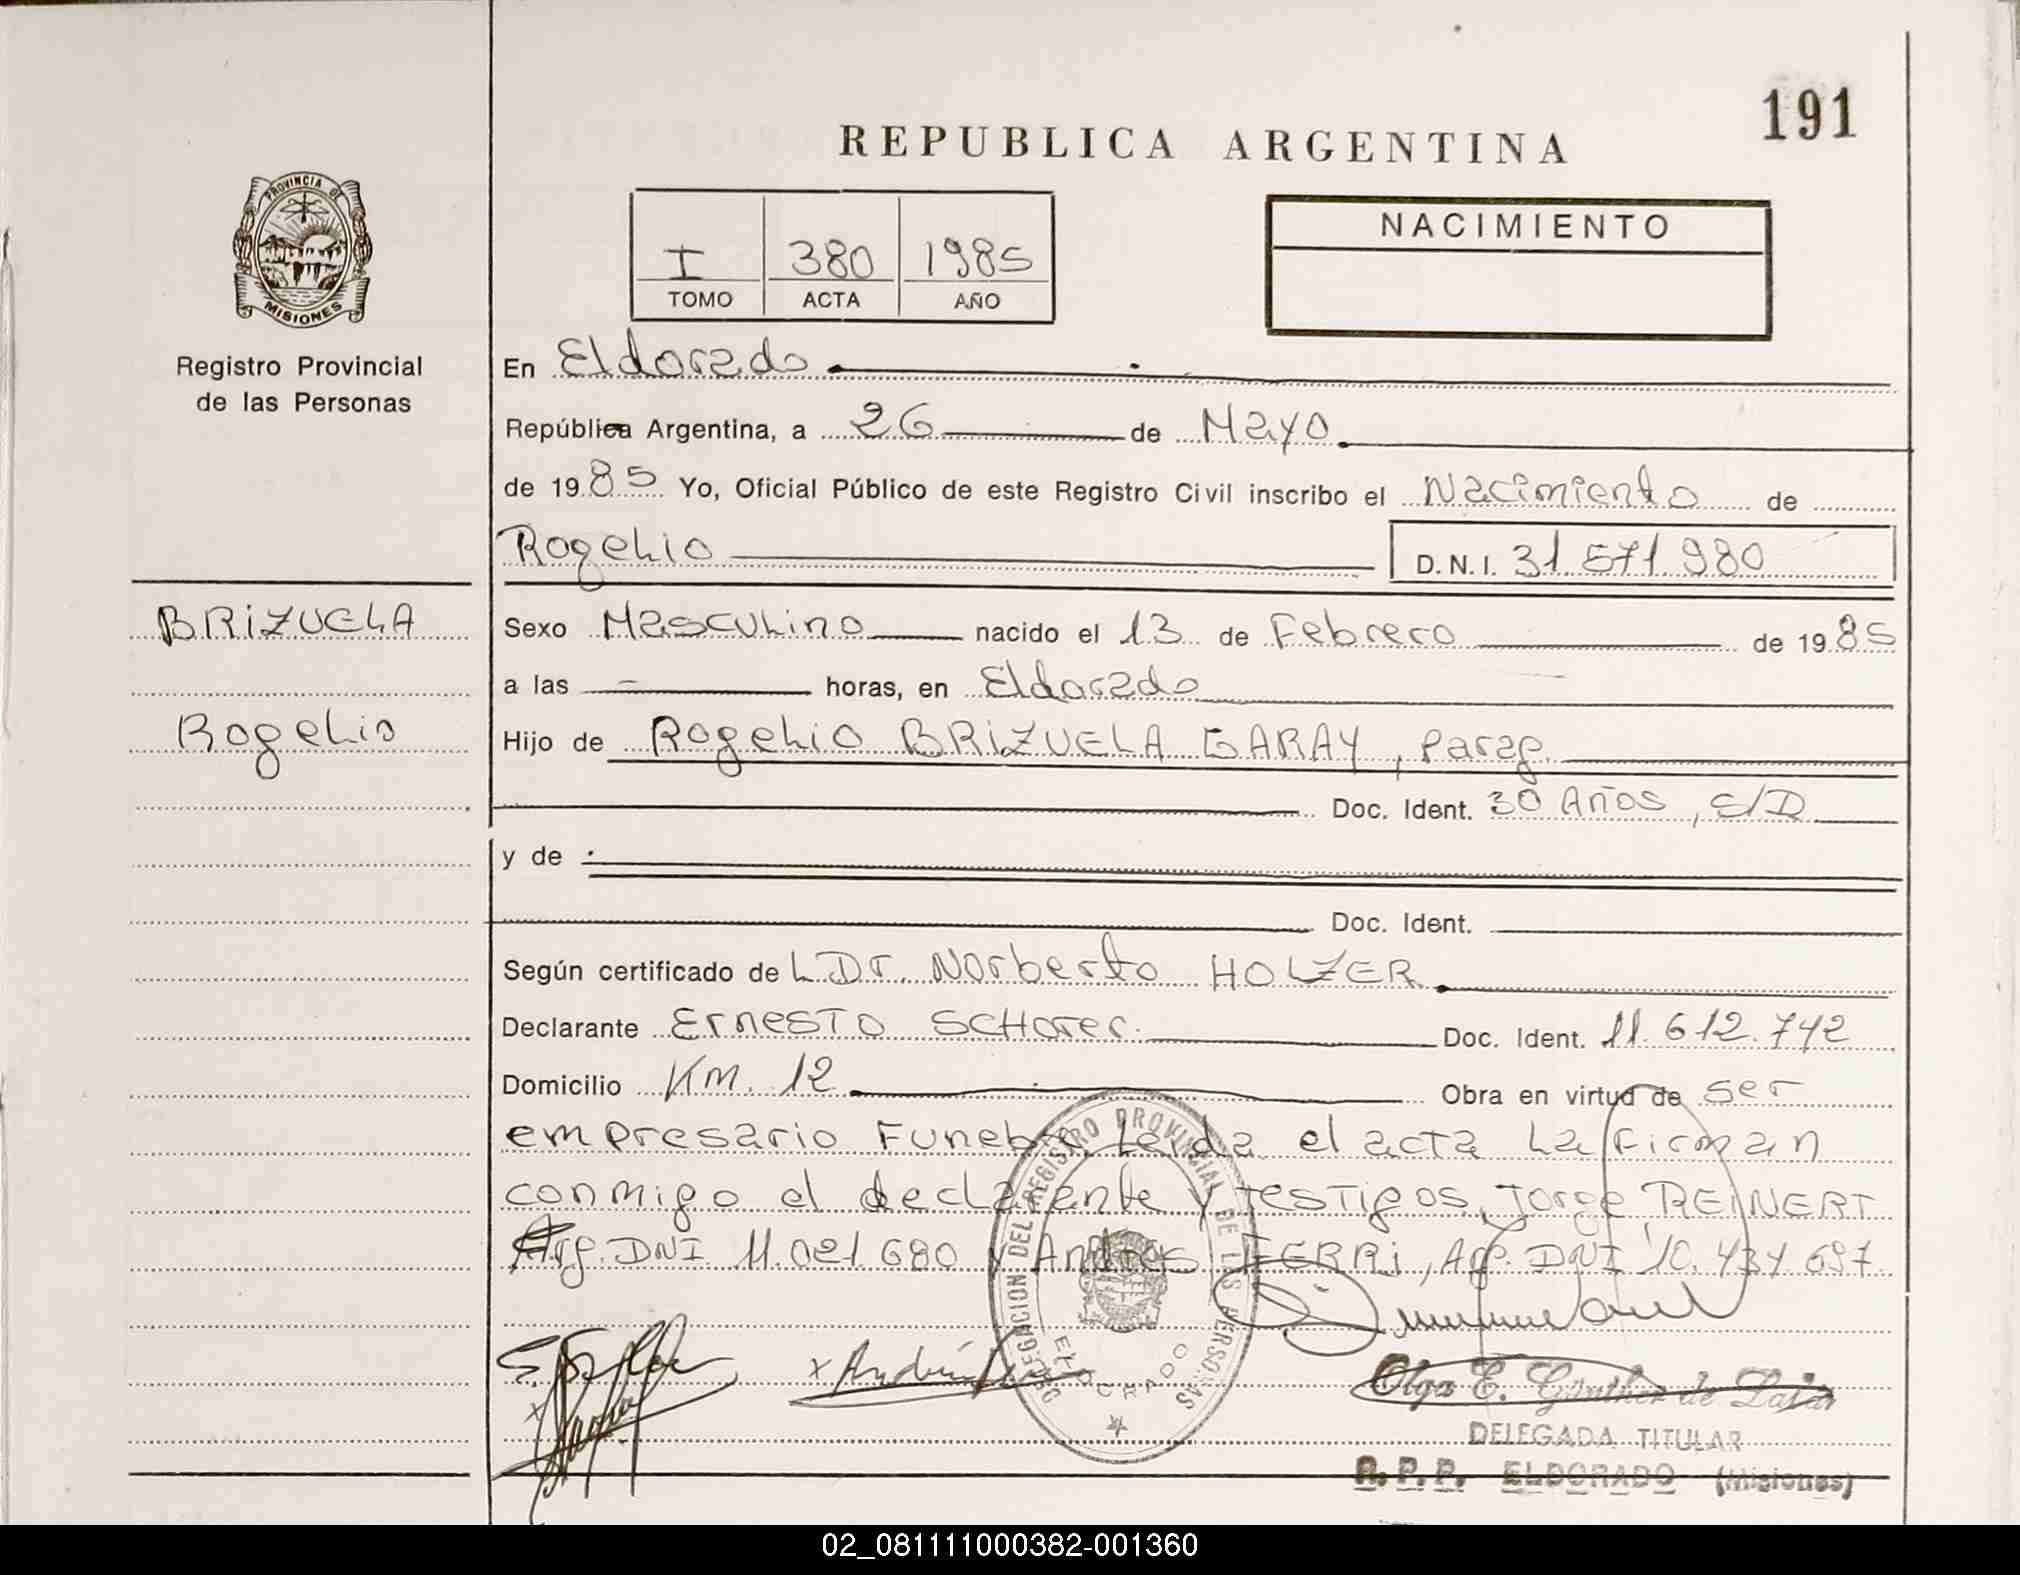 191
REPUBLICA ARGENTINA
PROVINCIA DE
MISIONES
Registro Provincial
de las Personas
I 380 1985
TOMO ACTA AÑO
NACIMIENTO
En Eldorado
República Argentina, a 26 de Mayo
de 1985 Yo, Oficial Público de este Registro Civil inscribo el Nacimiento de
Rogelio D.N.I. 31.571.980
BRIZUELA
Rogelio
Sexo Masculino nacido el 13 de Febrero de 1985
a las - horas, en Eldorado
Hijo de Rogelio BRIZUELA GARAY, Parag.
Doc. Ident. 30 Años, S/D
y de
Doc. Ident.
Según certificado de L Dr. Norberto HOLZER
Declarante Ernesto SCHorer Doc. Ident. 11.612.742
Domicilio KM. 12 Obra en virtud de ser
empresario Funebre Leida el acta La Firman
conmigo el declarente y testigos, Jorge REINERT
Arg. DNI 11.021.680 y Andres FERRI, Arg. DNI 10.434.697.
DELEGACION DEL REGISTRO PROVINCIAL DE LAS PERSONAS
ELDORADO
Olga E. Günther de
DELEGADA TITULAR
R.P.P. ELDORADO (Misiones)
02_081111000382-001360